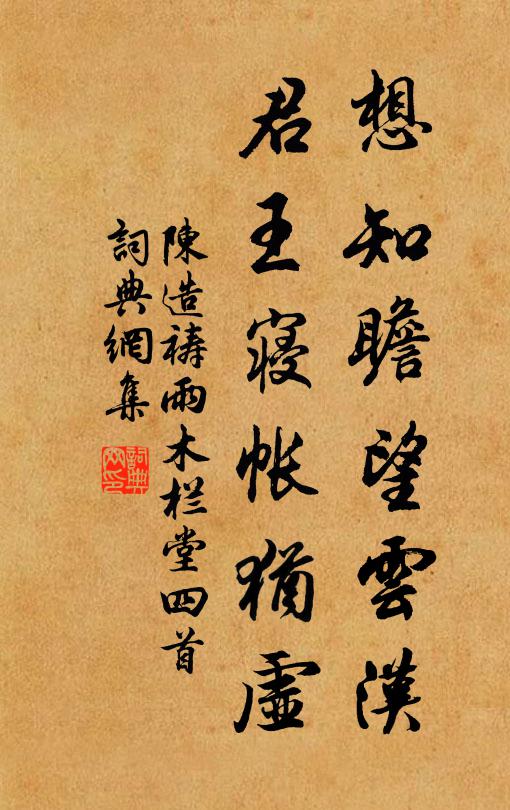 想知瞻望雲漢
君王寝帐猶虛
陳造禱雨木栏堂四首
詞典網集
詞典網印